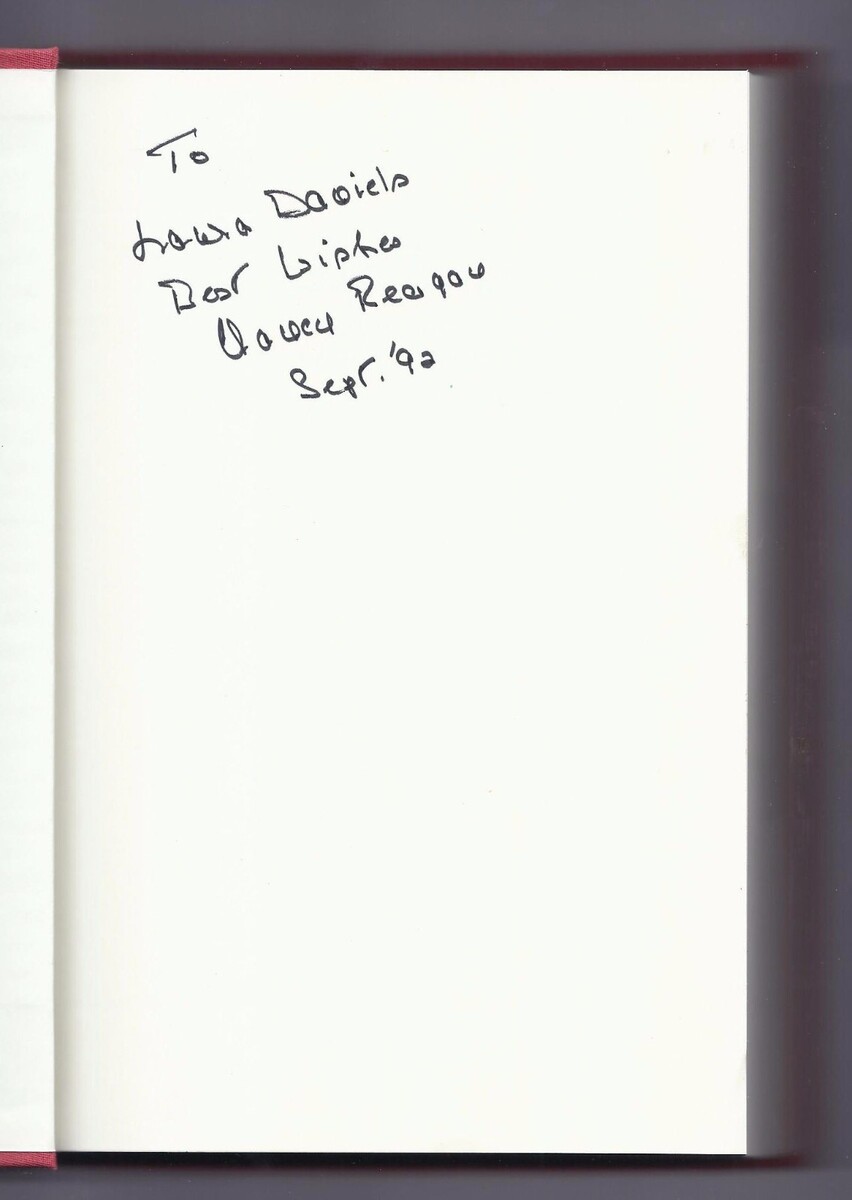 To
Laura Daniels
Best Wishes
Nancy Reagan
Sept. '92